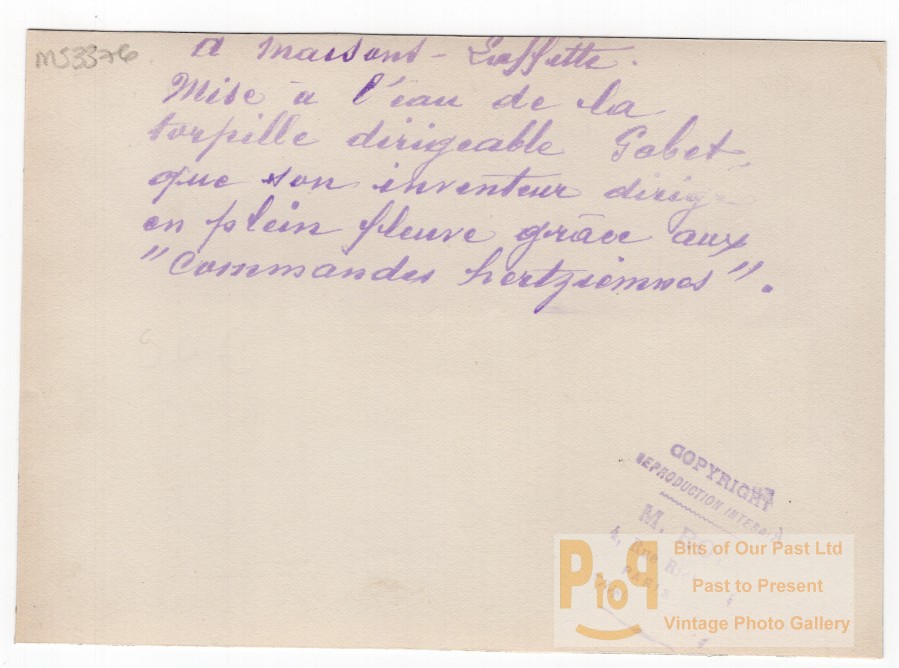 MS3376
A Maisons-Laffitte.
Mise à l'eau de la
torpille dirigeable Gabet,
que son inventeur dirige
en plein fleuve grâce aux
"Commandes hertziennes".
COPYRIGHT
REPRODUCTION INTERDITE
M.
4, Rue
PARIS
PtoP
Bits of Our Past Ltd
Past to Present
Vintage Photo Gallery